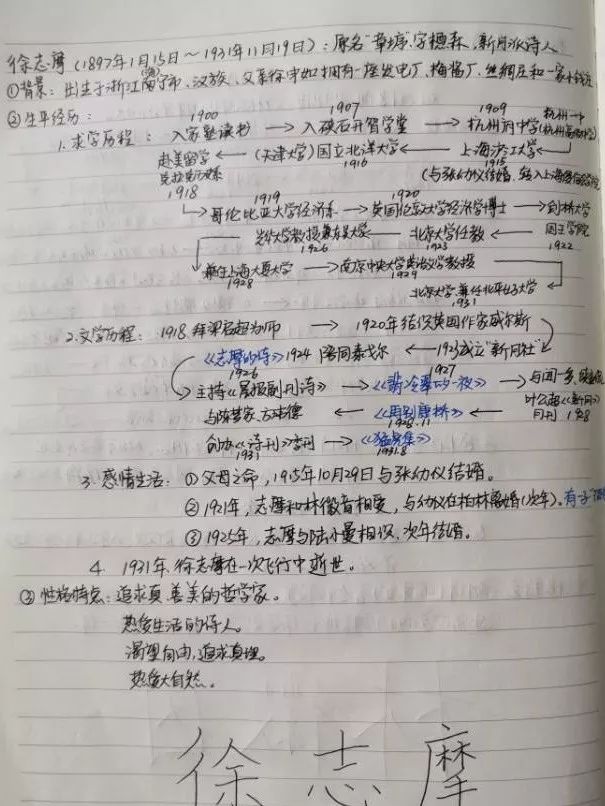 徐志摩 (1897年1月15日~1931年11月19日): 原名"章垿",字槱森,新月派诗人
①背景: 出生于浙江海宁市、汉族、父亲徐申如拥有一座发电厂、梅酱厂、丝绸庄和一家小钱庄
②生平经历:
1900 1907 1909 杭州一中
1.求学历程: 入家塾读书 → 入硖石开智学堂 → 杭州府中学
赴美留学 ← (天津大学)国立北洋大学 ← 上海沪江大学
克拉克历史系 1916 1915
1918 (与张幼仪结婚、转入上海
1919 1920
→ 哥伦比亚大学经济系 → 英国伦敦大学经济学博士 → 剑桥大学
光华大学教授兼东吴大学 ← 北京大学任教 国王学院
1926 1923 1922
兼任上海大夏大学 → 南京中央大学英语文学教授
1928 1929
北京大学、兼任北平女子大学
1931
2.文学历程: 1918.拜梁启超为师 → 1920年结识英国作家威尔斯
《志摩的诗》1924 陪同泰戈尔 ← 1923成立"新月社"
1926 1927
→ 主持《晨报副刊诗》 → 《翡冷翠的一夜》 → 与闻一多、
与陈梦家、方玮德 ← 《再别康桥》 ← 叶公超《新月》
1928.11 月刊 1928
创办《诗刊》季刊 → 《猛虎集》
1931 1931.8
3.感情生活: ①父母之命,1915年10月29日与张幼仪结婚。
②1921年,志摩和林徽音相爱,与幼仪在柏林离婚(次年)。有子
③1925年,志摩与陆小曼相识、次年结婚。
4. 1931年、徐志摩在一次飞行中逝世。
③性格特点: 追求真善美的哲学家。
热爱生活的诗人。
渴望自由,追求真理。
热爱大自然。
徐志摩